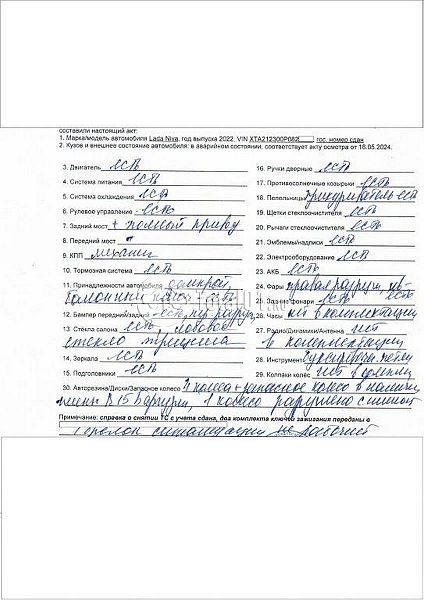 составили настоящий акт:
1. Марка/модель автомобиля Lada Niva, год выпуска 2022, VIN XTA212300P082 гос. номер сдан
2. Кузов и внешнее состояние автомобиля: в аварийном состоянии, соответствует акту осмотра от 16.05.2024.
3. Двигатель есть
4. Система питания есть
5. Система охлаждения есть
6. Рулевое управление есть
7. Задний мост + полный привод
8. Передний мост
9. КПП механич
10. Тормозная система есть
11. Принадлежности автомобиля домкрат,
12. Бампер передний/задний есть, пер. разруш
13. Стёкла салона есть, лобовое
стекло трещина
14. Зеркала есть
15. Подголовники есть
16. Ручки дверные есть
17. Противосолнечные козырьки есть
18. Пепельницы прикуриватель есть
19. Щетки стеклоочистителя есть
20. Рычаги стеклоочистителя есть
21. Эмблемы/надписи есть
22. Электрооборудование есть
23. АКБ есть
24. Фары правая разруш, лев-есть
25. Задние фонари есть
26. Часы нет в комплектации
27. Радио/Динамики/Антенна нет
в комплектации
28. Инструмент
29. Колпаки колёс нет в компл
30. Авторезина/Диски/Запасное колесо 4 колеса + запасное колесо в наличии
шины R15 Баргузин, 1 колесо разрушено с шиной
Примечание: справка о снятии ТС с учета сдана, два комплекта ключей зажигания переданы в
1 брелок сигнализации не рабочий